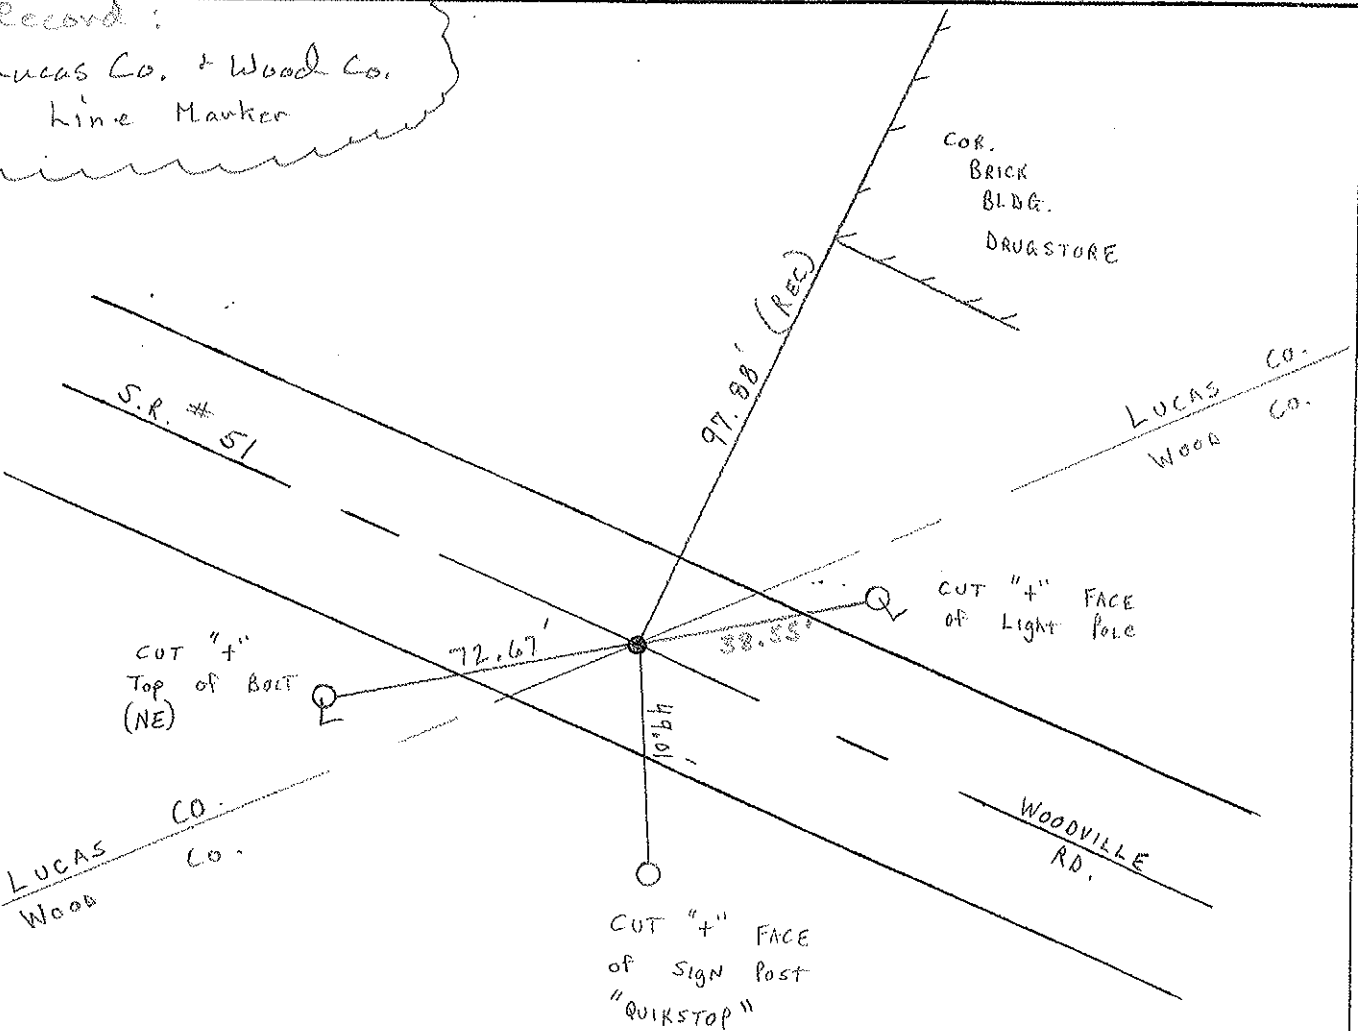 Record :
Lucas Co. & Wood Co.
Line Marker
COR.
BRICK
BLDG.
DRUGSTORE
97.88' (REC)
S.R. # 51
LUCAS CO.
WOOD CO.
CUT "+" FACE
of Light Pole
38.55'
72.67'
CUT "+"
Top of BOLT
(NE)
49.01'
LUCAS CO.
WOOD CO.
WOODVILLE
RD.
CUT "+" FACE
of SIGN POST
"QUIKSTOP"